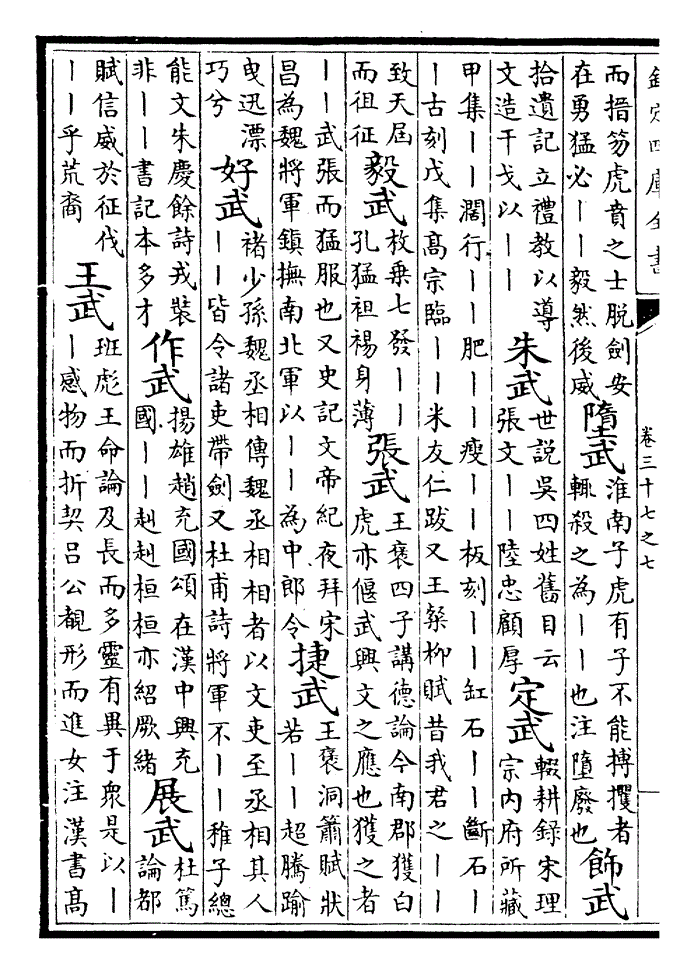 欽定四庫全書
卷三十七之七
而搢笏虎賁之士脫劍安
在勇猛必丨丨毅然後威
墮武
淮南子虎有子不能搏攫者
輒殺之為丨丨也注墮廢也
飾武
拾遺記立禮教以導
文造干戈以丨丨
朱武
世說吳四姓舊目云
張文丨丨陸忠顧厚
定武
輟耕録宋理
宗内府所藏
甲集丨丨濶行丨丨肥丨丨瘦丨丨板刻丨丨缸石丨丨斷石丨
丨古刻戊集髙宗臨丨丨米友仁跋又王粲柳賦昔我君之丨丨
致天屆
而徂征
毅武
枚乗七發丨丨
孔猛袒裼身薄
張武
王褒四子講德論今南郡獲白
虎亦偃武興文之應也獲之者
丨丨武張而猛服也又史記文帝紀夜拜宋
昌為魏將軍鎮撫南北軍以丨丨為中郎令
捷武
王褒洞簫賦狀
若丨丨超騰踰
曳迅漂
巧兮
好武
褚少孫魏丞相傳魏丞相相者以文吏至丞相其人
丨丨皆令諸吏帶劍又杜甫詩將軍不丨丨稚子總
能文朱慶餘詩戎裝
非丨丨書記本多才
作武
揚雄趙充國頌在漢中興充
國丨丨赳赳桓桓亦紹厥緒
展武
杜篤
論都
賦信威於征伐
丨丨乎荒裔
王武
班彪王命論及長而多靈有異于衆是以丨
丨感物而折契吕公覩形而進女注漢書髙